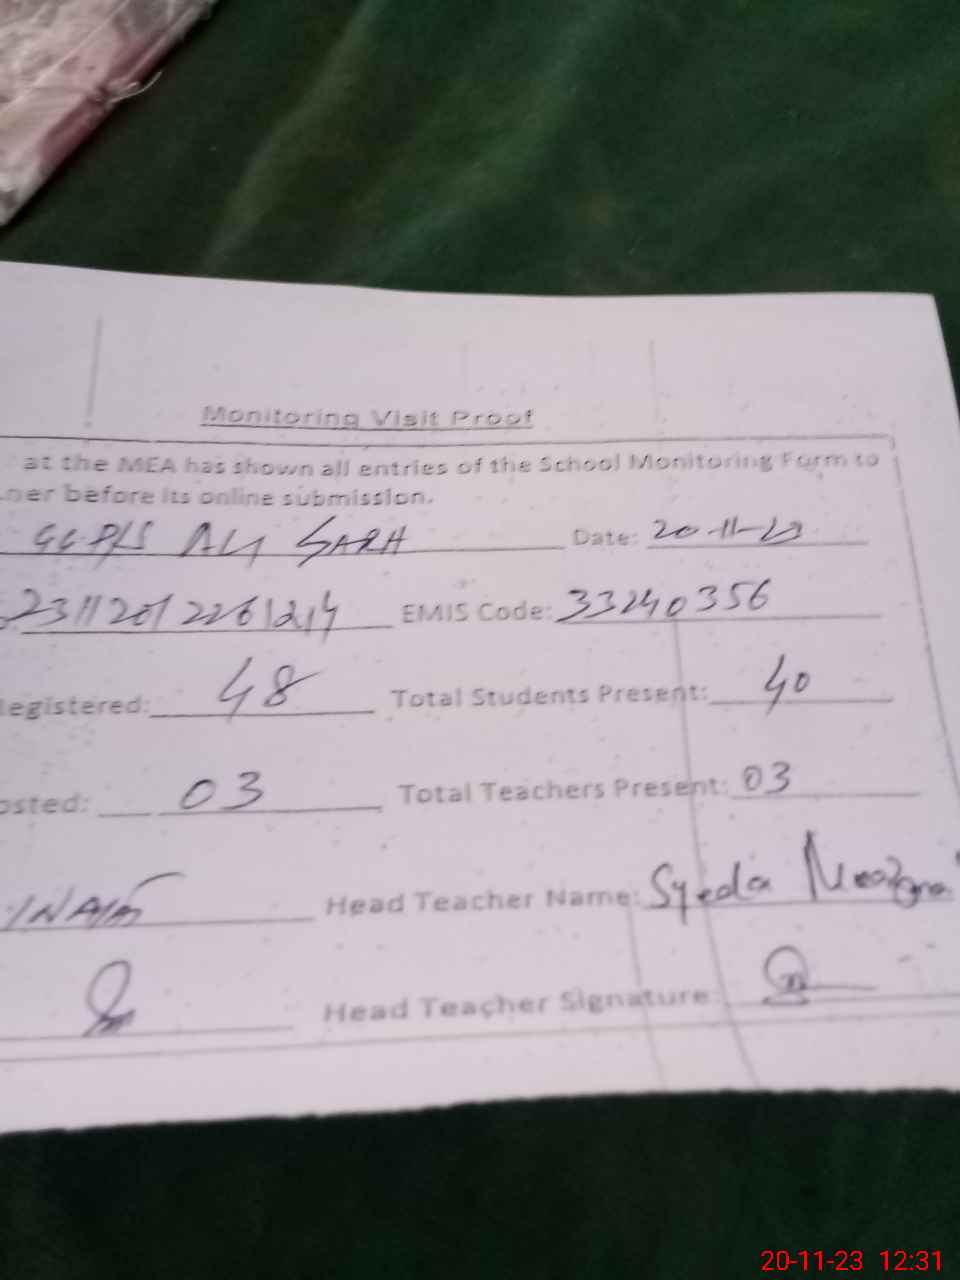 Monitoring Visit Proof
at the MEA has shown all entries of the School Monitoring Form to
ner before its online submission.
GGP/S ALI GARH Date: 20-11-23
EMIS Code: 33240356
Registered: 48 Total Students Present: 40
osted: 03 Total Teachers Present: 03
INAM Head Teacher Name: Syeda
Head Teacher Signature:
20-11-23 12:31